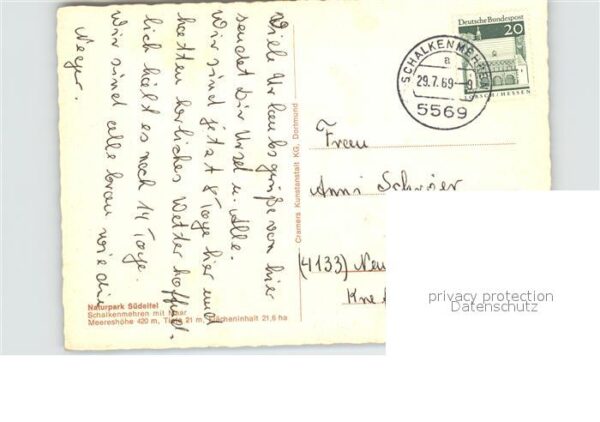 Viele Urlaubsgrüße von hier
sendet Dir Ursel u. Alle.
Wir sind jetzt 8 Tage hier und
hatten herliches Wetter hoffent-
lich hält es noch 14 Tage.
Wir sind alle braun wie die
Neger.
Naturpark Südeifel
Schalkenmehren mit Maar
Meereshöhe 420 m, Tiefe 21 m, Flächeninhalt 21,6 ha
Cramers Kunstanstalt KG, Dortmund
SCHALKENMEHREN
a
29.7.69-9
5569
Deutsche Bundespost
20
LORSCH/HESSEN
Frau
Anni Schröer
(4133) Neu
privacy protection
Datenschutz